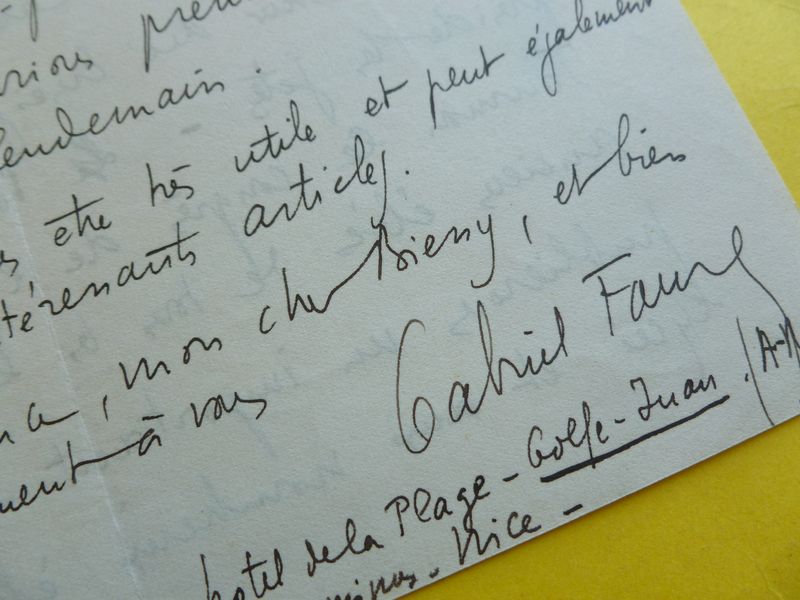 lendemain.
être très utile et peut également
intéressants articles.
, mon cher Bieny, et bien
à vous
Gabriel Faure
hotel de la Plage - Golfe-Juan. (A-M
Nice -